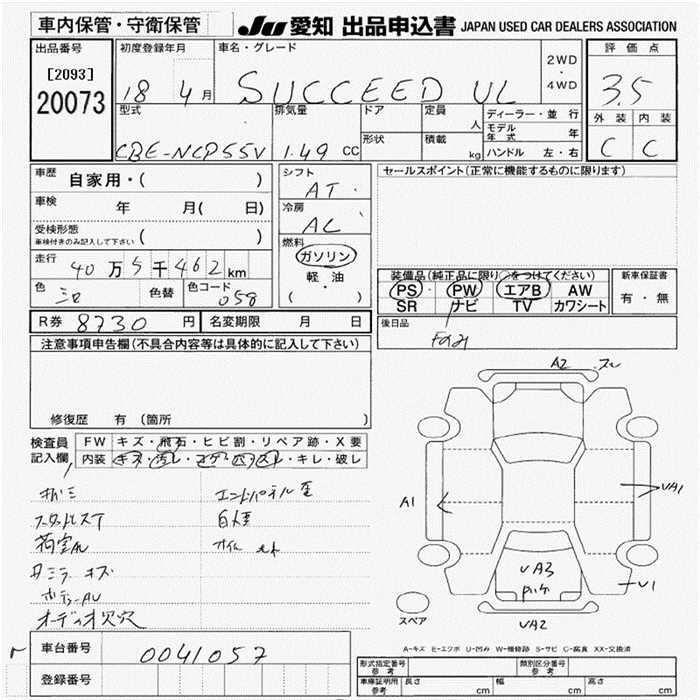 車内保管・守衛保管 JU 愛知 出品申込書 JAPAN USED CAR DEALERS ASSOCIATION
出品番号 初度登録年月 車名・グレード 評価点
[2093]
20073
18 4月 SUCCEED UL 2WD・4WD 3.5
型式 排気量 ドア 定員 人 ディーラー・並行 外装 内装
モデル年式 年
CBE-NCP55V 1.49 CC 形状 積載 kg ハンドル 左・右 C C
車歴 自家用・( ) シフト AT セールスポイント(正常に機能するものに限ります)
車検 年 月( 日) 冷房 AC
受検形態
車検付きのみ記入して下さい ( ) 燃料
ガソリン
走行 40万5千462km 軽・油 装備品(純正品に限り○をつけてください) 新車保証書
色 シロ 色替 色コード 058 ( ) PS PW エアB AW 有・無
SR ナビ TV カワシート
R券 8730円 名変期限 月 日 後日品
注意事項申告欄(不具合内容等は具体的に記入して下さい)
修復歴 有 (箇所 )
検査員記入欄 FW キズ・飛石・ヒビ割・リペア跡・X要
内装 キズ・汚レ・コゲ・穴・スレ・キレ・破レ
A2 スレ
A1 VA1
エンドパネル歪
荷室AU
オーディオ欠穴
VA3
V1
VA2
スペア
A-キズ E-エクボ U-凹み W-補修跡 S-サビ C-腐食 XX-交換済
車台番号 0041057
登録番号
形式指定番号 参考 類別区分番号 参考
車庫証明用 参考 長さ cm 幅 cm 高さ cm